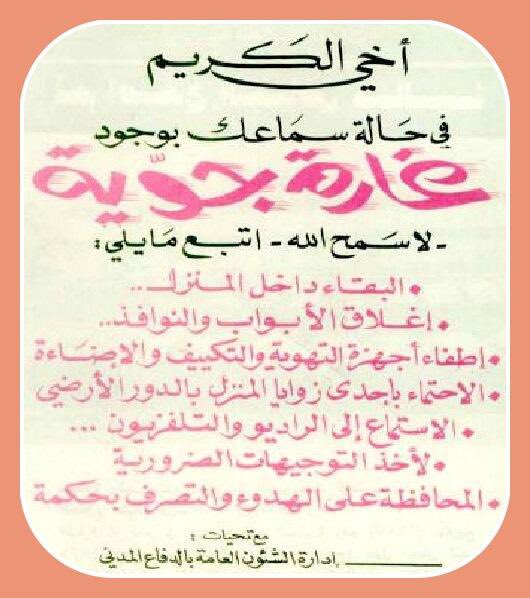 أخي الكريم
في حالة سماعك بوجود
غارة جوّية
- لا سمح الله - اتبع مايلي:
• البقاء داخل المنزل..
• إغلاق الأبواب والنوافذ..
• إطفاء أجهزة التهوية والتكييف والإضاءة
• الاحتماء بإحدى زوايا المنزل بالدور الأرضي
• الاستماع إلى الراديو والتلفزيون ...
• لأخذ التوجيهات الضرورية
• المحافظة على الهدوء والتصرف بحكمة
مع تحيات :
إدارة الشئون العامة بالدفاع المدني